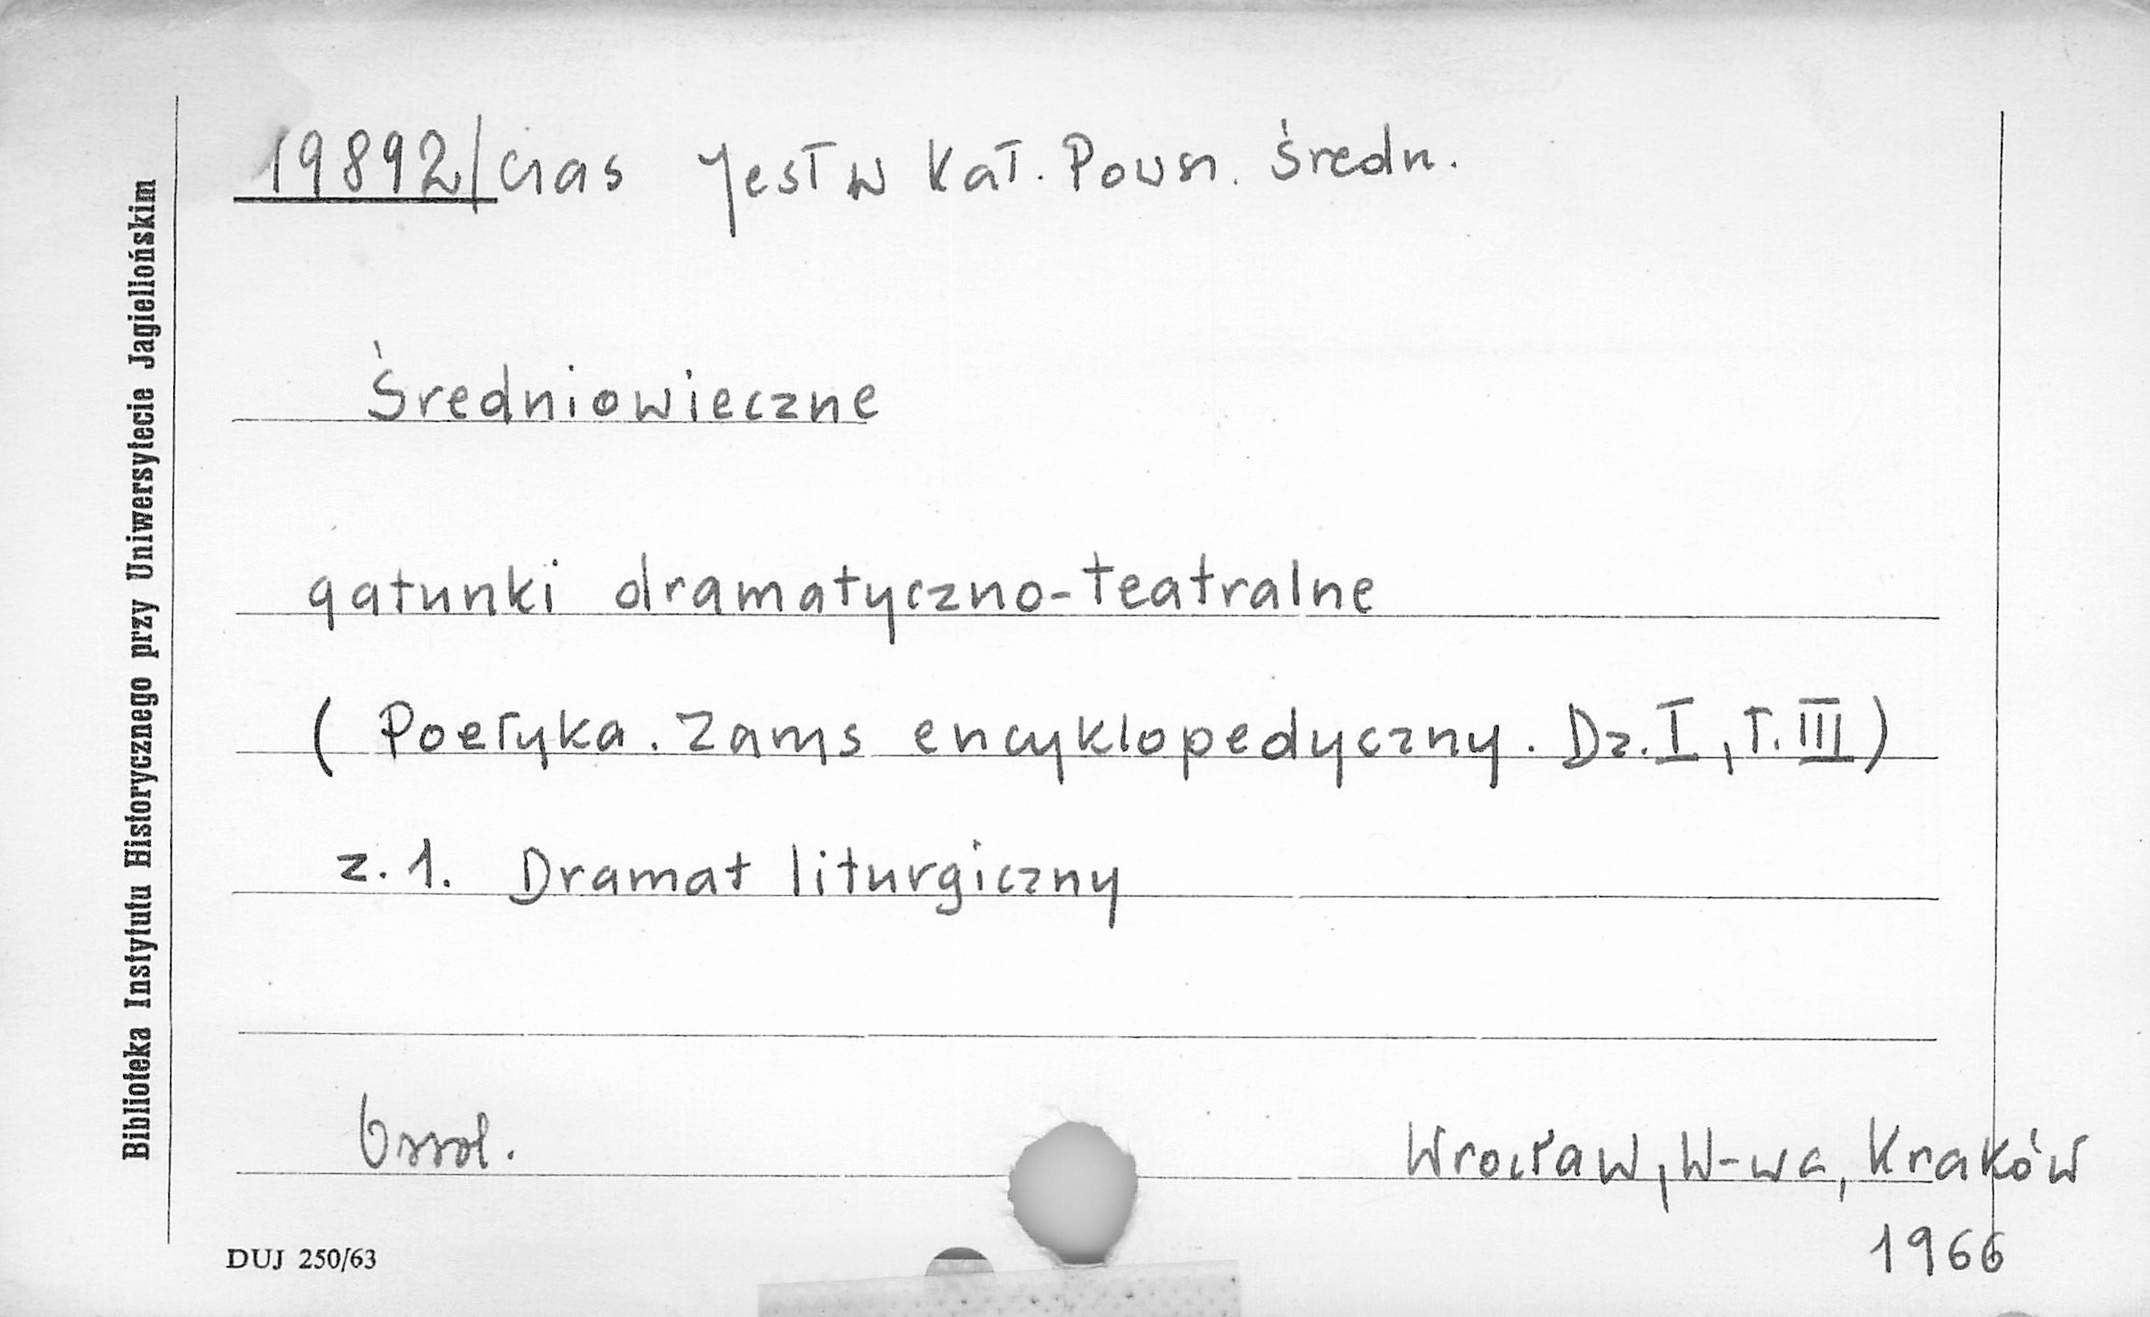 19892/czas Jest w Kat. Powsz. Średn.
Średniowieczne
gatunki dramatyczno-teatralne
( Poetyka. Zarys encyklopedyczny. Dz. I, T. III )
z. 1. Dramat liturgiczny
Ossol.
Wrocław, W-wa, Kraków
1966
Biblioteka Instytutu Historycznego przy Uniwersytecie Jagiellońskim
DUJ 250/63